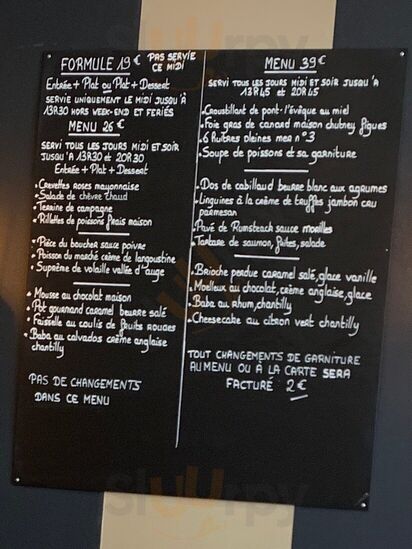 FORMULE 19€ PAS SERVIE
CE MIDI
Entrée + Plat ou Plat + Dessert
SERVIE UNIQUEMENT LE MIDI JUSQU'À
13R30 HORS WEEK-END ET FERIÉS
MENU 26 €
SERVI TOUS LES JOURS MIDI ET SOIR
JUSQU'A 13R30 ET 20R30
Entrée + Plat + Dessert
• Crevettes roses mayonnaise
• Salade de chèvre chaud
• Terrine de campagne
• Rillettes de poissons frais maison
• Pièce du boucher sauce poivre
• Poisson du marché crème de langoustine
• Suprême de volaille vallée d'auge
• Mousse au chocolat maison
• Pot gourmand caramel beurre salé
• Faisselle au coulis de fruits rouges
• Baba au calvados crème anglaise
chantilly
PAS DE CHANGEMENTS
DANS CE MENU
MENU 39€
SERVI TOUS LES JOURS MIDI ET SOIR JUSQU'A
13R45 ET 20R45
• Croustillant de pont-l'évêque au miel
• Foie gras de canard maison chutney figues
• 6 huîtres pleines mer n°3
• Soupe de poissons et sa garniture
• Dos de cabillaud beurre blanc aux agrumes
• Linguines à la crème de truffes jambon cru
parmesan
• Pavé de Rumsteack sauce morilles
• Tartare de saumon, frites, salade
• Brioche perdue caramel salé, glace vanille
• Moelleux au chocolat, crème anglaise, glace
• Baba au rhum, chantilly
• Cheesecake au citron vert chantilly
TOUT CHANGEMENTS DE GARNITURE
AU MENU OU À LA CARTE SERA
FACTURÉ : 2€
Sluurpy